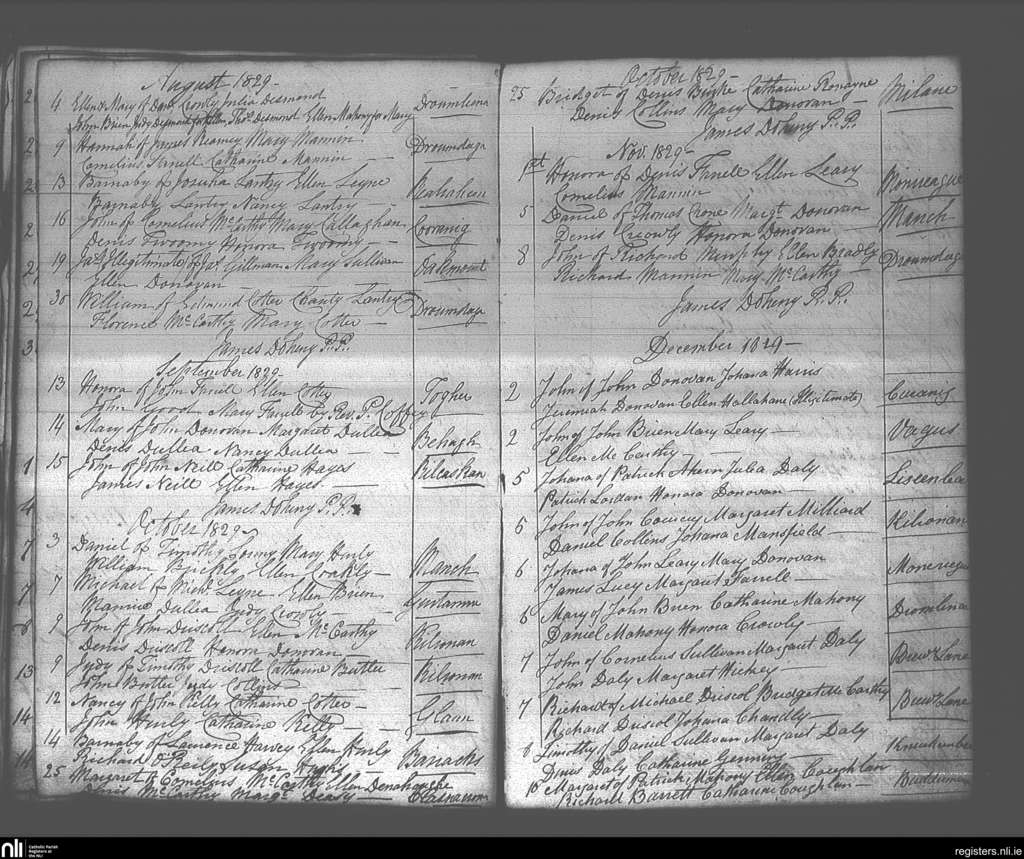 August 1829
4 Ellen & Mary of Danl Crowly Julia Desmond Droumlena
John Buen Judy Desmond for Ellen, Thos. Desmond Ellen Mahony for Mary
9 Hannah of James Mary Mannin Droumdaga
Cornelius Farrell Catharine Mannin
13 Barnaby of Joshua Lantry Ellen Leyne
Barnaby Lantry Nancy Lantry
16 John of Cornelius McCarthy Mary Callaghan Corranig
Denis Twoomy Honora Twoomy
19 Jas. (Illegitimate) of Jas. Gillman Mary Sullivan
Ellen Donovan
30 William of Edmund Cotter Lantry Droumdaga
Florence McCarthy Mary Cotter
James Doheny P.P.
September 1829
13 Honora of John Farrell Ellen Cotter Togher
John Good Mary Farrell by Rev. P. Coffey
14 Mary of John Donovan Margaret Dullea Behagh
Denis Dullea Nancy Dullea
15 John of John Neill Catharine Hayes Kilcaskan
James Neill Ellen Hayes
James Doheny P.P.
October 1829
3 Daniel of Timothy Mary Hurly Manch
William Buckly Ellen Coakly
7 Michael of Michl. Leyne Ellen Brien
Dullea Judy Crowly
9 John of John Driscoll Ellen McCarthy Kilronan
Denis Driscoll Honora Donovan
9 Judy of Timothy Driscoll Catharine Butler Kilronan
John Butler Judy Collins
12 Nancy of John Reilly Catharine Cotter Glann
John Hurly Catharine
14 Barnaby of Laurence Harvey Ellen Hurly Barracks
Richard O'Reily Susan
25 Margaret of Cornelius McCarthy Ellen Donahoughe
Denis McCarthy Margt. Deasy
October 1829
25 Bridget of Denis Burke Catharine Ronayne Milane
Denis Collins Mary Donovan
James Doheny P.P.
Nov. 1829
1st Honora of Denis Farrell Ellen Leary
Cornelius Mannin
5 Daniel of Thomas Crone Margt. Donovan Manch
Denis Crowly Honora Donovan
8 John of Richard Murphy Ellen Bradly Droumdaga
Richard Mannin Mary McCarthy
James Doheny P.P.
December 1829
2 John of John Donovan Johana Harris Curanig
Jeremiah Donovan Ellen Hallahane (Illegitimate)
2 John of John Buen Mary Leary Vagus
Ellen McCarthy
5 Johana of Patrick Ahern Julia Daly Liseenlea
Patrick Lordan Honora Donovan
5 John of John Courcey Margaret Milliard Kilronan
Daniel Collins Johana Mansfield
6 Johana of John Leary Mary Donovan
James Lucy Margaret Farrell
6 Mary of John Buen Catharine Mahony Dromlena
Daniel Mahony Honora Crowly
7 John of Cornelius Sullivan Margaret Daly Bew. Lane
John Daly Margaret Hickey
7 Richard of Michael Driscol Bridget McCarthy Bew. Lane
Richard Driscol Johana Chandly
8 Timothy of Daniel Sullivan Margaret Daly
Denis Daly Catharine
10 Margaret of Patrick Mahony Ellen Coughlan
Richard Barrett Catharine Coughlan
nli
Catholic Parish
Registers at
the NLI
registers.nli.ie